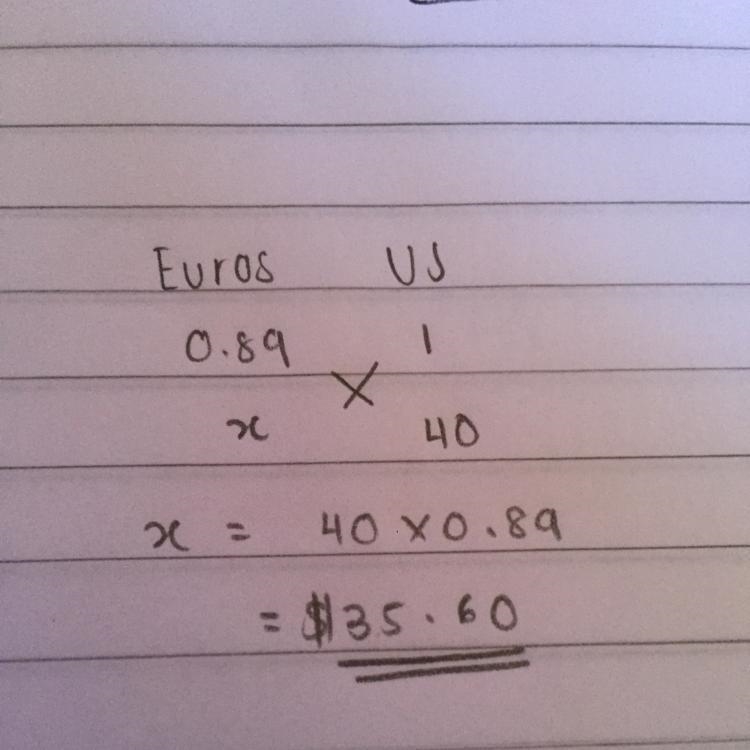 Euros US
0.89 1
x 40
x = 40 × 0.89
= $35.60